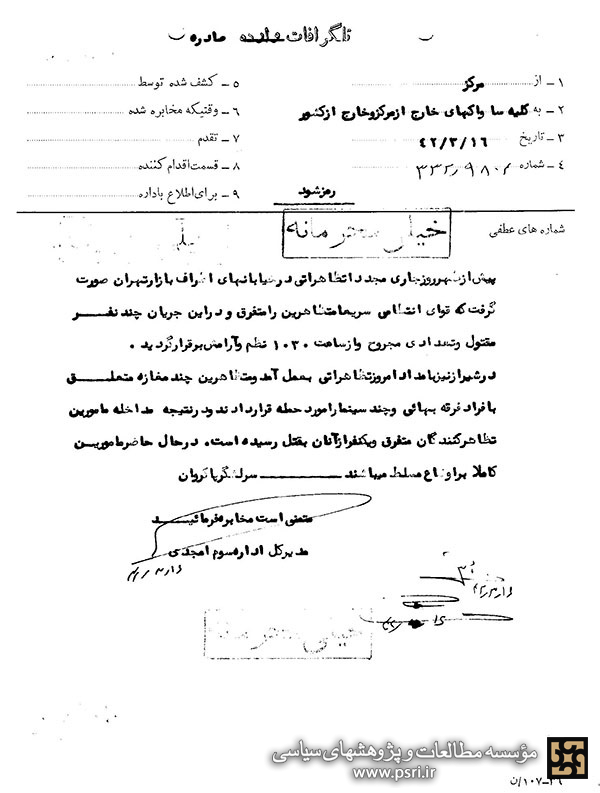 تلگرافات صادره
۱ - از مرکز
۲ - به کلیه ساواکهای خارج ازمرکزوخارج ازکشور
۳ - تاریخ ۴۲/۳/۱۶
۴ - شماره
۵ - کشف شده توسط
۶ - وقتیکه مخابره شده
۷ - تقدم
۸ - قسمت اقدام کننده
۹ - برای اطلاع باداره
رمزشود
شماره های عطفی
خیلی محرمانه
پیش ازظهرروزجاری مجدد اتظاهراتی درخیابانهای اطراف بازارتهران صورت
گرفت که قوای انتظامی سریعامتظاهرین رامتفرق و دراین جریان چند نفر
مقتول وتعدادی مجروح وازساعت ۱۰۳۰ نظم وآرامش برقرارگردید .
درشیرازنیزبامداد امروزتظاهراتی بعمل آمد ومتظاهرین چند مغازه متعلق
بافراد فرقه بهائی وچند سینمارامورد حمله قراردادند ودرنتیجه مداخله مامورین
تظاهرکنندگان متفرق ویکنفرازآنان بقتل رسیده است. درحال حاضرمامورین
کاملا براوضاع مسلط میباشند سرلشگرپاکروان
متمنی است مخابره فرمائید
مدیرکل اداره سوم امجدی
خیلی محرمانه
مؤسسه مطالعات و پژوهشهای سیاسی
www.psri.ir
۳۶-۱۰۷/ن